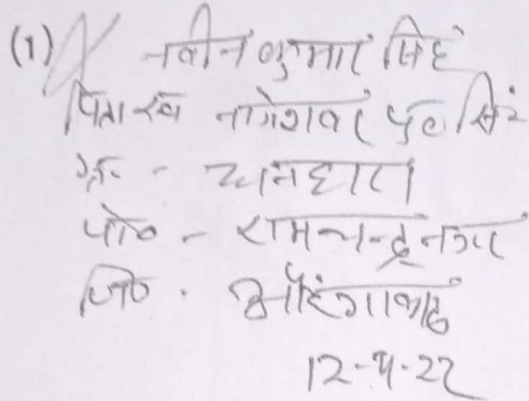 (1) नवीन कुमार सिंह
पिता स्व नागेश्वर प्र० सिंह
ग्रा० -
पो० - रामचन्द्र नगर
जि० . औरंगाबाद
12-4-22